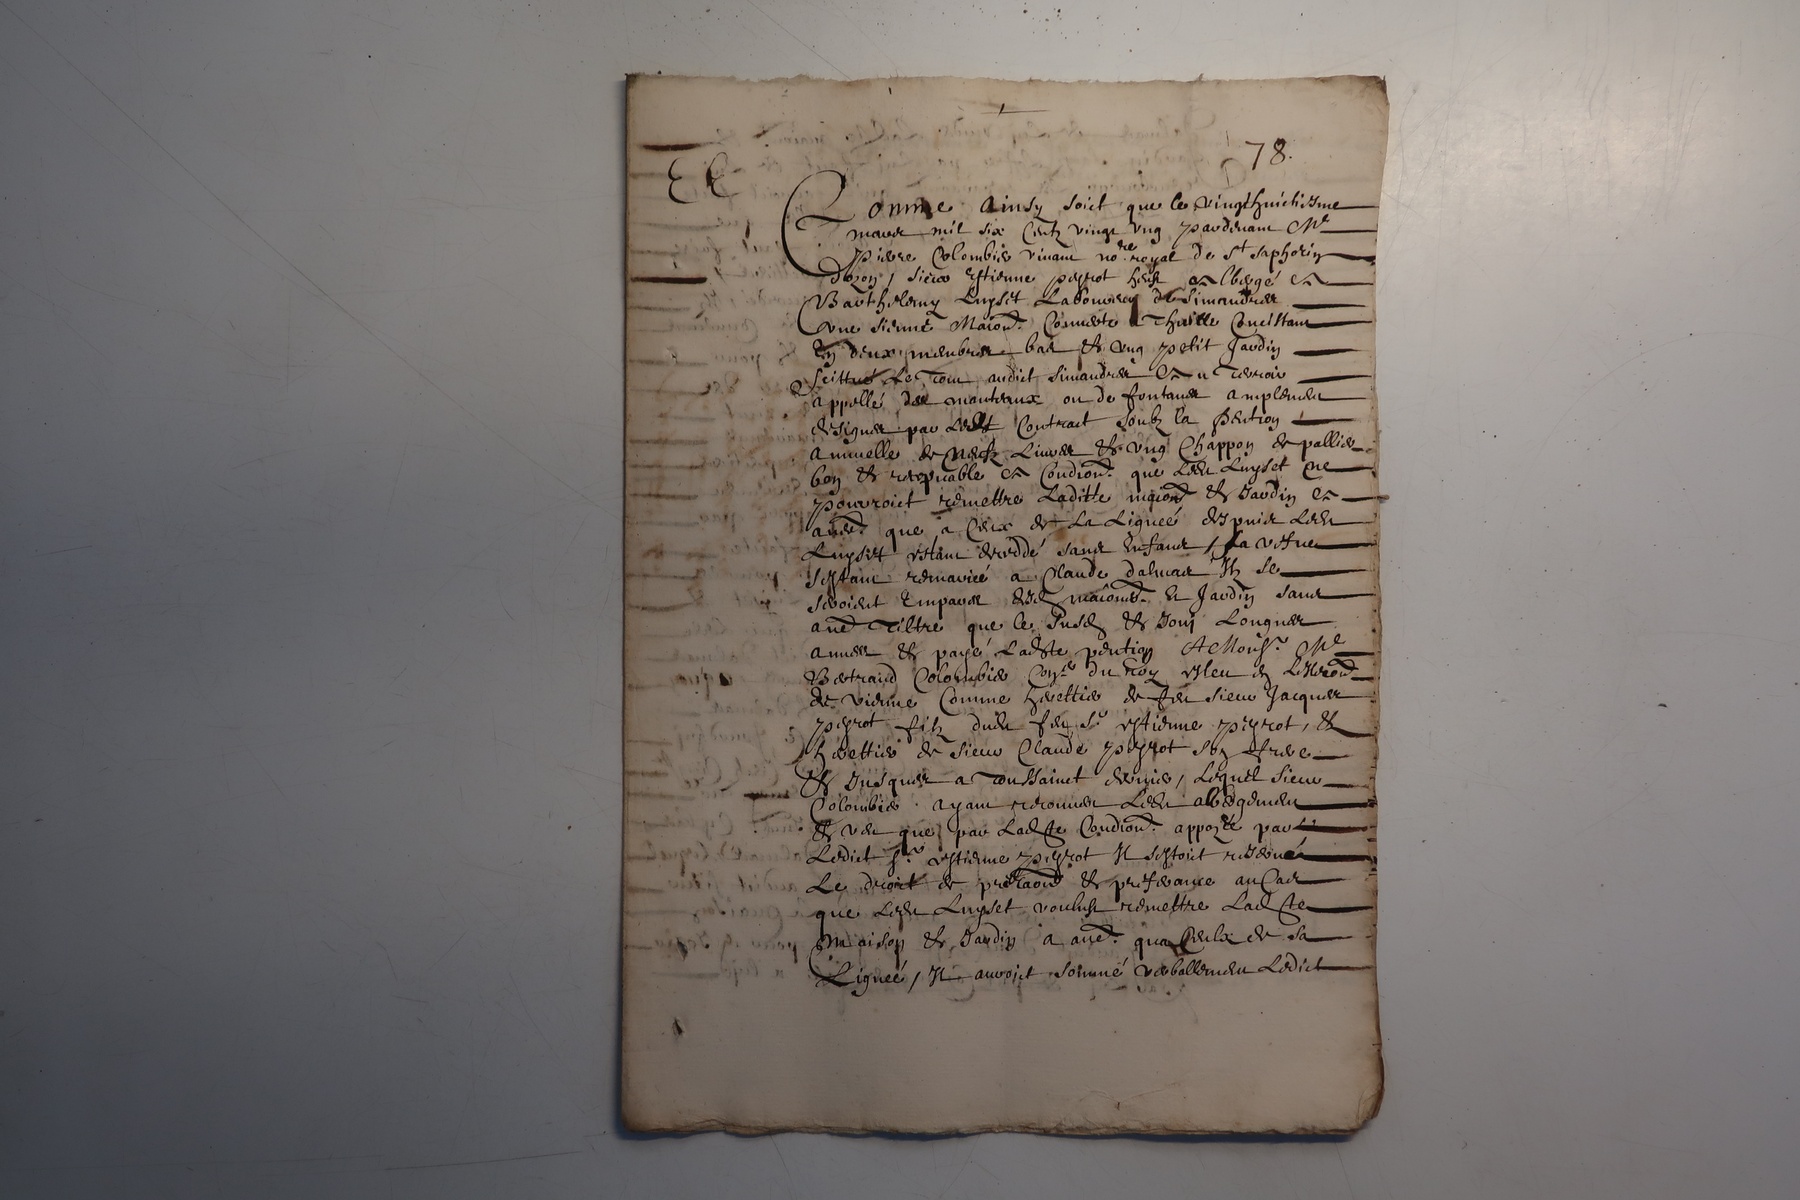 78.
Comme ainsy soict que le vingthuictiesme
mars mil six centz vingt ung pardevant Me
Pierre Colombier vivant nore royal de St saphorin
dozon, sieur Estienne peyrot heust albergé a
Barthelemy Luyset Laboureur de Simandres
une sienne Maison couverte a Thuille Concistant
En deux membres bas et ung petit Jardin
scittué Le Tout audict Simandres au Terroir
appellé des manteaux ou de fontanes amplement
designés par Ledt Contract soubz la pention
annuelle de Livres et ung Chappon de pallier
bon et recepvable a Condion. que Ledt Luyset ne
pourroict remettre Laditte maison et Jardin a
autre que a Ceux de La Lignée despuis Ledt
Luyset estant deceddé sans Enfans, sa vefve
sestant remariée a Claude dalmas Ilz se
seroient Emparés desd maisons et Jardin sans
autre Tiltre que le Susd et Jouy Longues
années et payé Ladte pention A Monsr. Me
Bertrand Colombier Conser du Roy esleu en Lellection
de vienne Comme heretier de feu sieur Jacques
peyrot filz dudt feu Sr. estienne peyrot, et
heretier de sieur Claude peyrot son frere
et Jusques a Toussainct dernier, Lequel sieur
Colombier ayant recouvert Ledt albergement
et veu que par Ladte Condion. appozée par
Ledict Sr. estienne peyrot Il sestoit reservé
Le droict de prelaon et preferance au Cas
que Ledt Luyset voulust remettre Ladte
Maison et Jardin a autre qua Ceulx de sa
Lignée, Il auroict sommé verballement Ledict